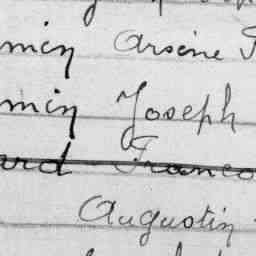 min Arsène
min Joseph
ard Franco
Augustin